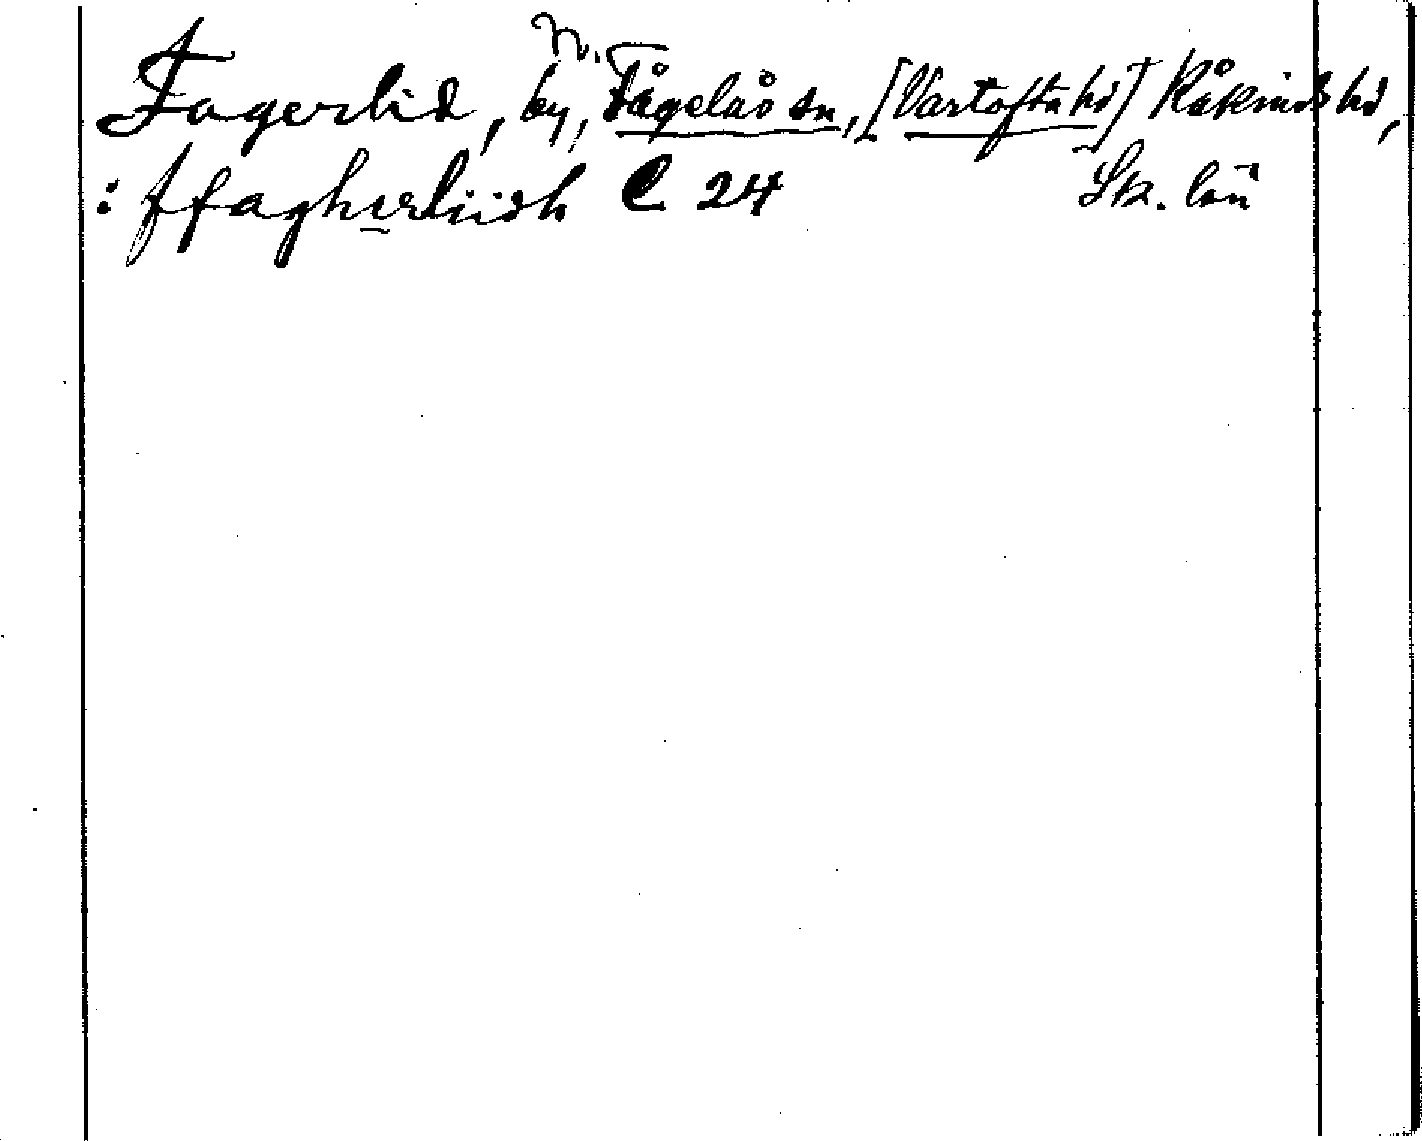 Fagerlid, by, N. Fågelås sn, [Vartofta hd] Kåkinds hd,
: ffagherliidh C 24 Sk. län